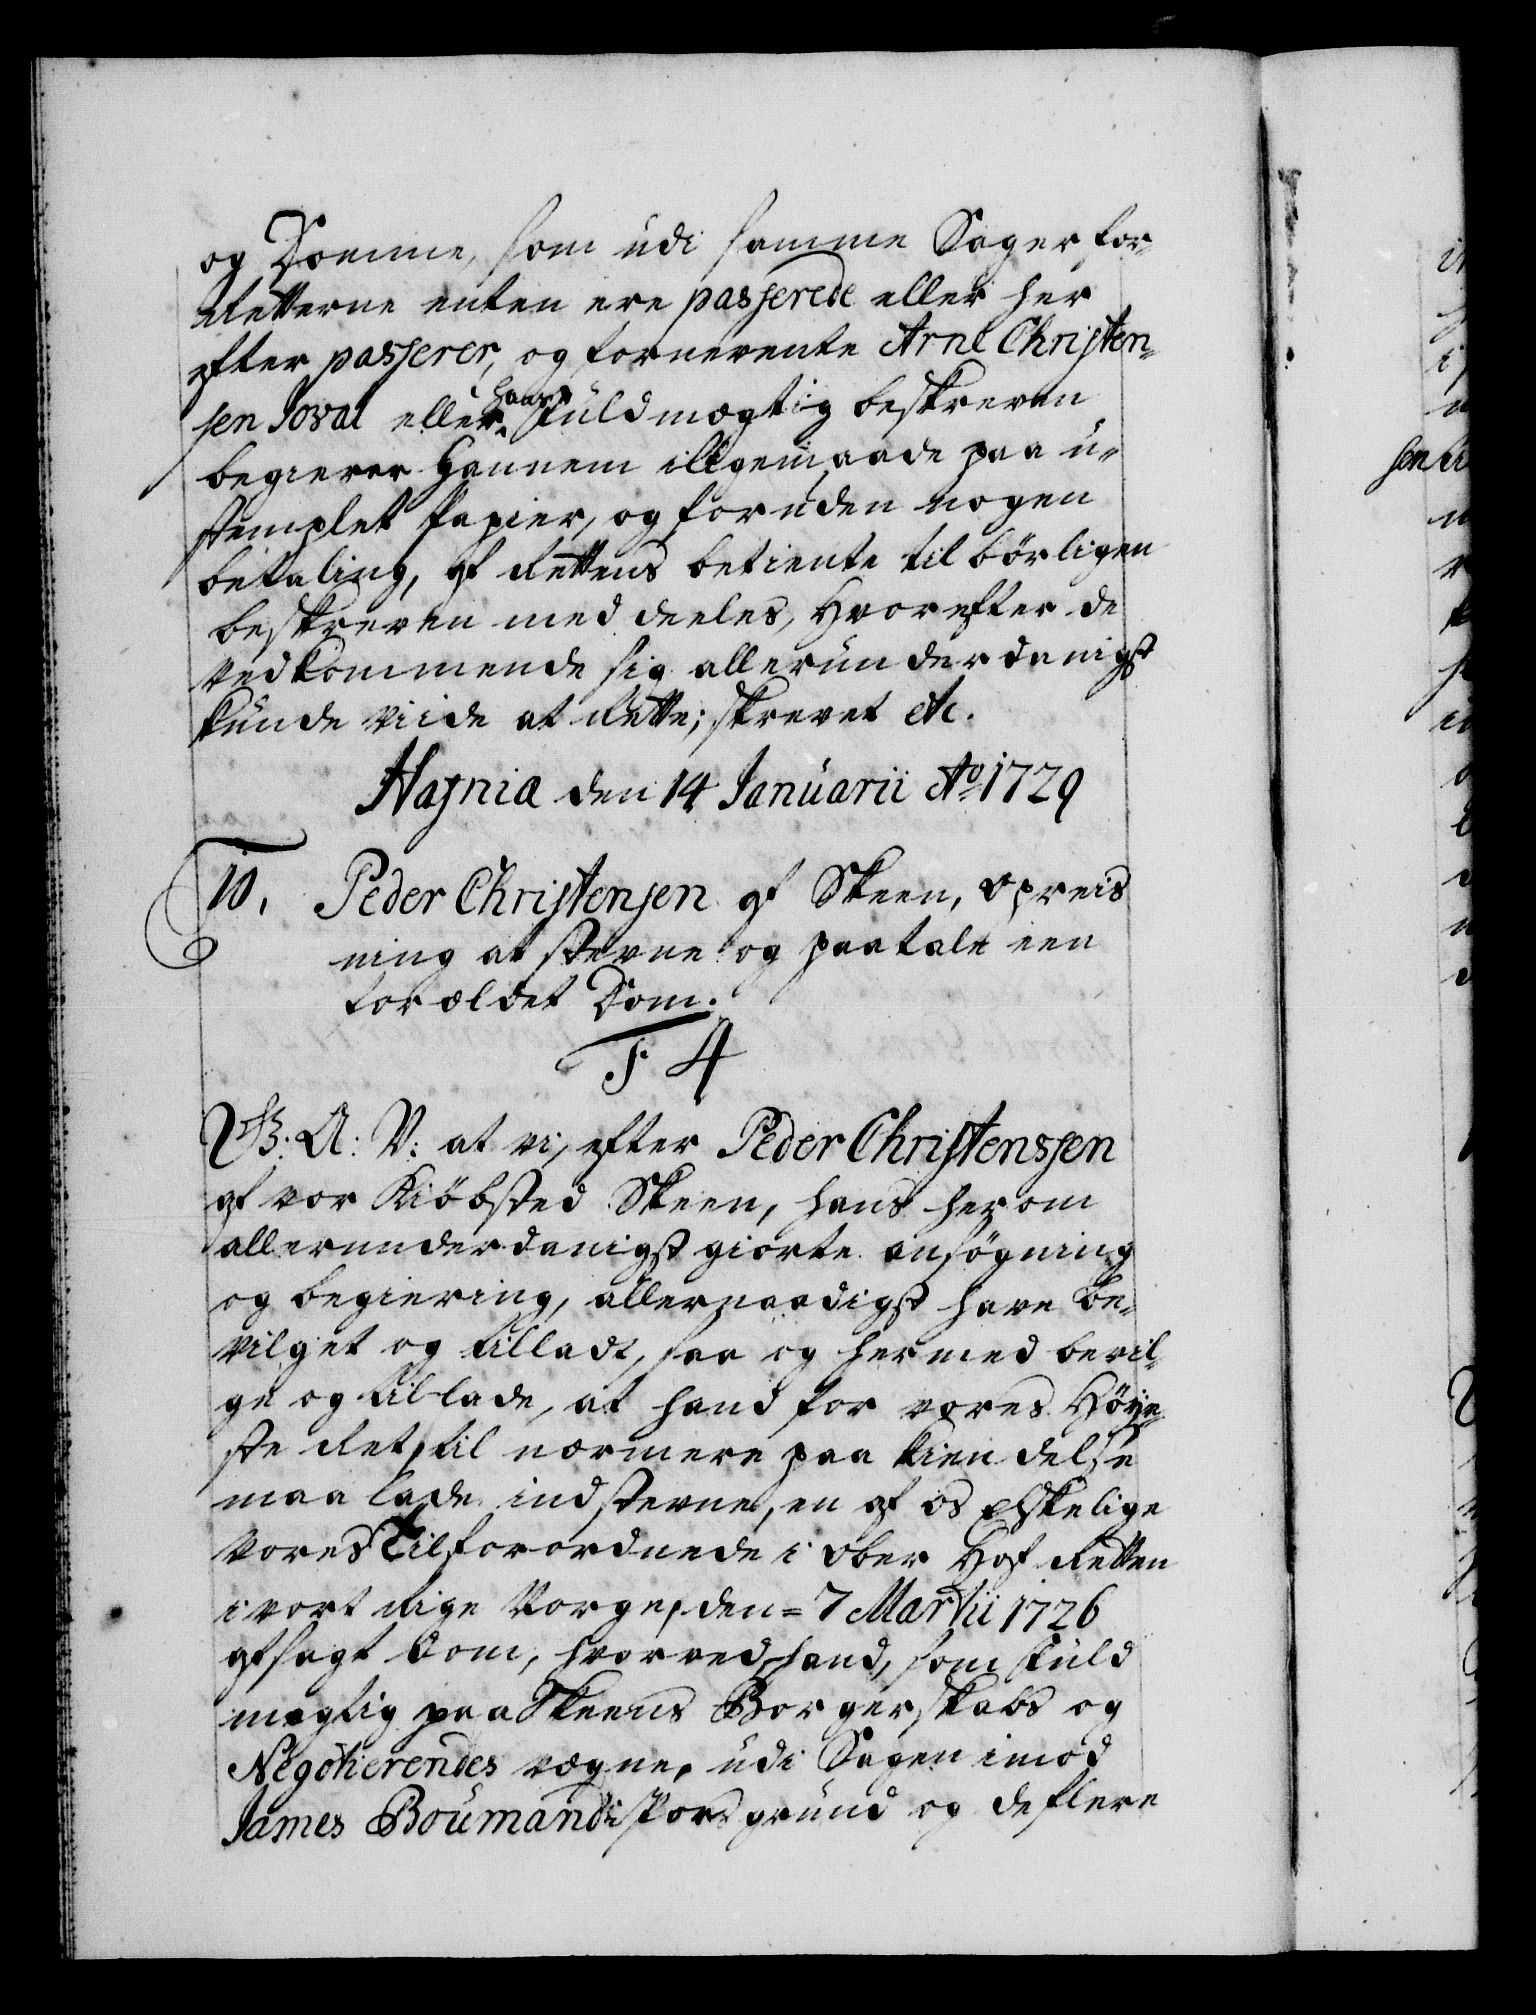 og Domme, som udi samme Sager for
Retterne enten ere passerede eller her
efter passerer, og fornevente Arne Christen-
sen Joval eller hans Fuldmægtig beskreven
begierer Hannem iligemaade paa u-
stemplet Papier, og foruden nogen
betaling, af Rettens betiente tilbörligen
beskreven meddeeles, Hvorefter de
vedkommende sig allerunderdanigst
kunde viide at Rette; skrevet etc.
Hafnia den 14 Januarii Ao 1729
10. Peder Christensen af Skeen, opreis
ning at stevne og paatale een
forældet Dom.
F. 4
G. A. V: at vi, efter Peder Christenssen
af vor Kiöbsted Skeen, hans herom
allerunderdanigst giorte ansögning
og begiering, allernaadigst have be-
vilget og tilladt, saa og hermed bevil-
ge og tillade, at hand for vores Höye-
ste Ret, til nærmere paakiendelse
maa lade indstevne, en af os Elskelige
vores Tilforordnede i Ober Hof Retten
i vort Rige Norge, den 7 Martii 1726
afsagt Dom, hvorved hand, som Fuld
mægtig paa Skeens Borgerskabs og
Negotierendes vægne, udi Sagen imod
James Boumand i Porsgrund og de flere